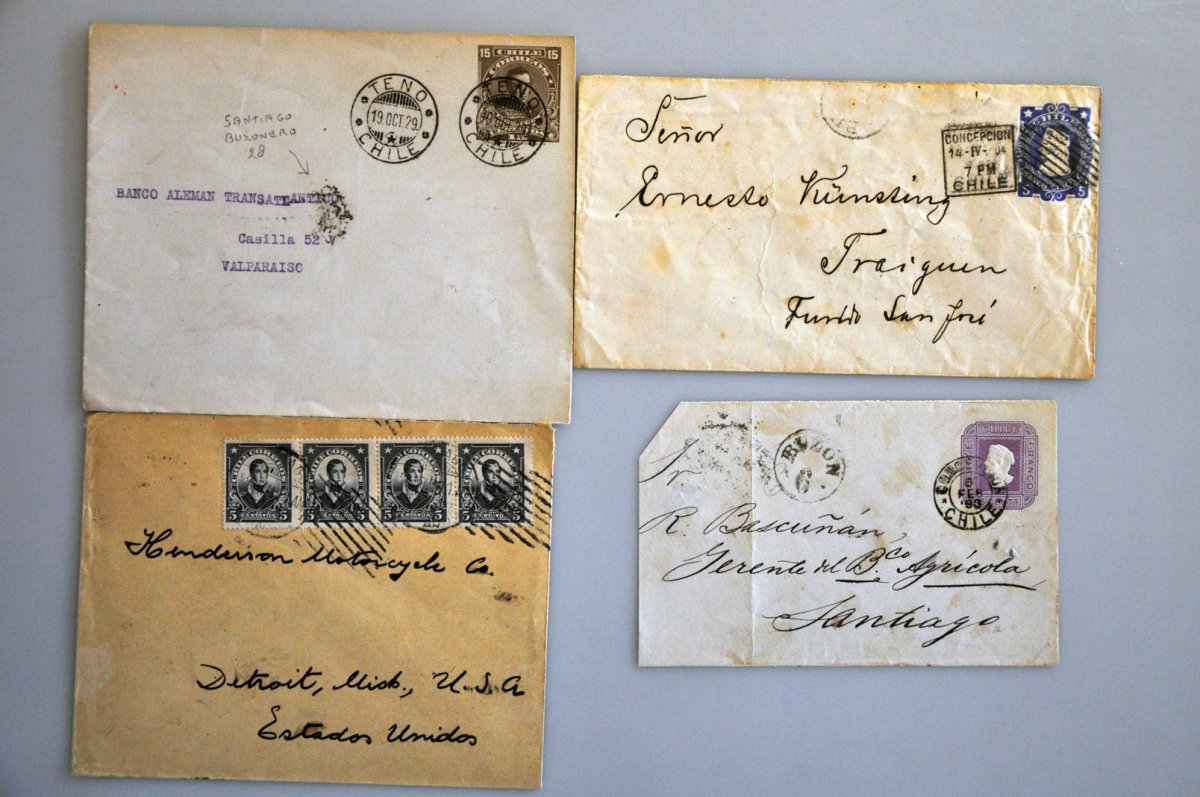 15 CHILE 15
CORREOS
TENO
19.OCT.29.
CHILE
TENO
CHILE
SANTIAGO
BUZONERO
28
BANCO ALEMAN TRANSATLANTICO
Casilla 52 V
VALPARAISO
CONCEPCION
14-IV-04
7 PM
CHILE
5 5
Señor
Ernesto Künsting
Traiguen
Fundo San José
5 CENTAVOS 5
5 CENTAVOS 5
5 CENTAVOS 5
5 CENTAVOS 5
Henderson Motorcycle Co.
Detroit, Mich., U.S.A
Estados Unidos
BUZON
6
CHILE
FRANCO
CHILE
Sr
R. Bascuñán,
Gerente del Bco Agrícola
Santiago